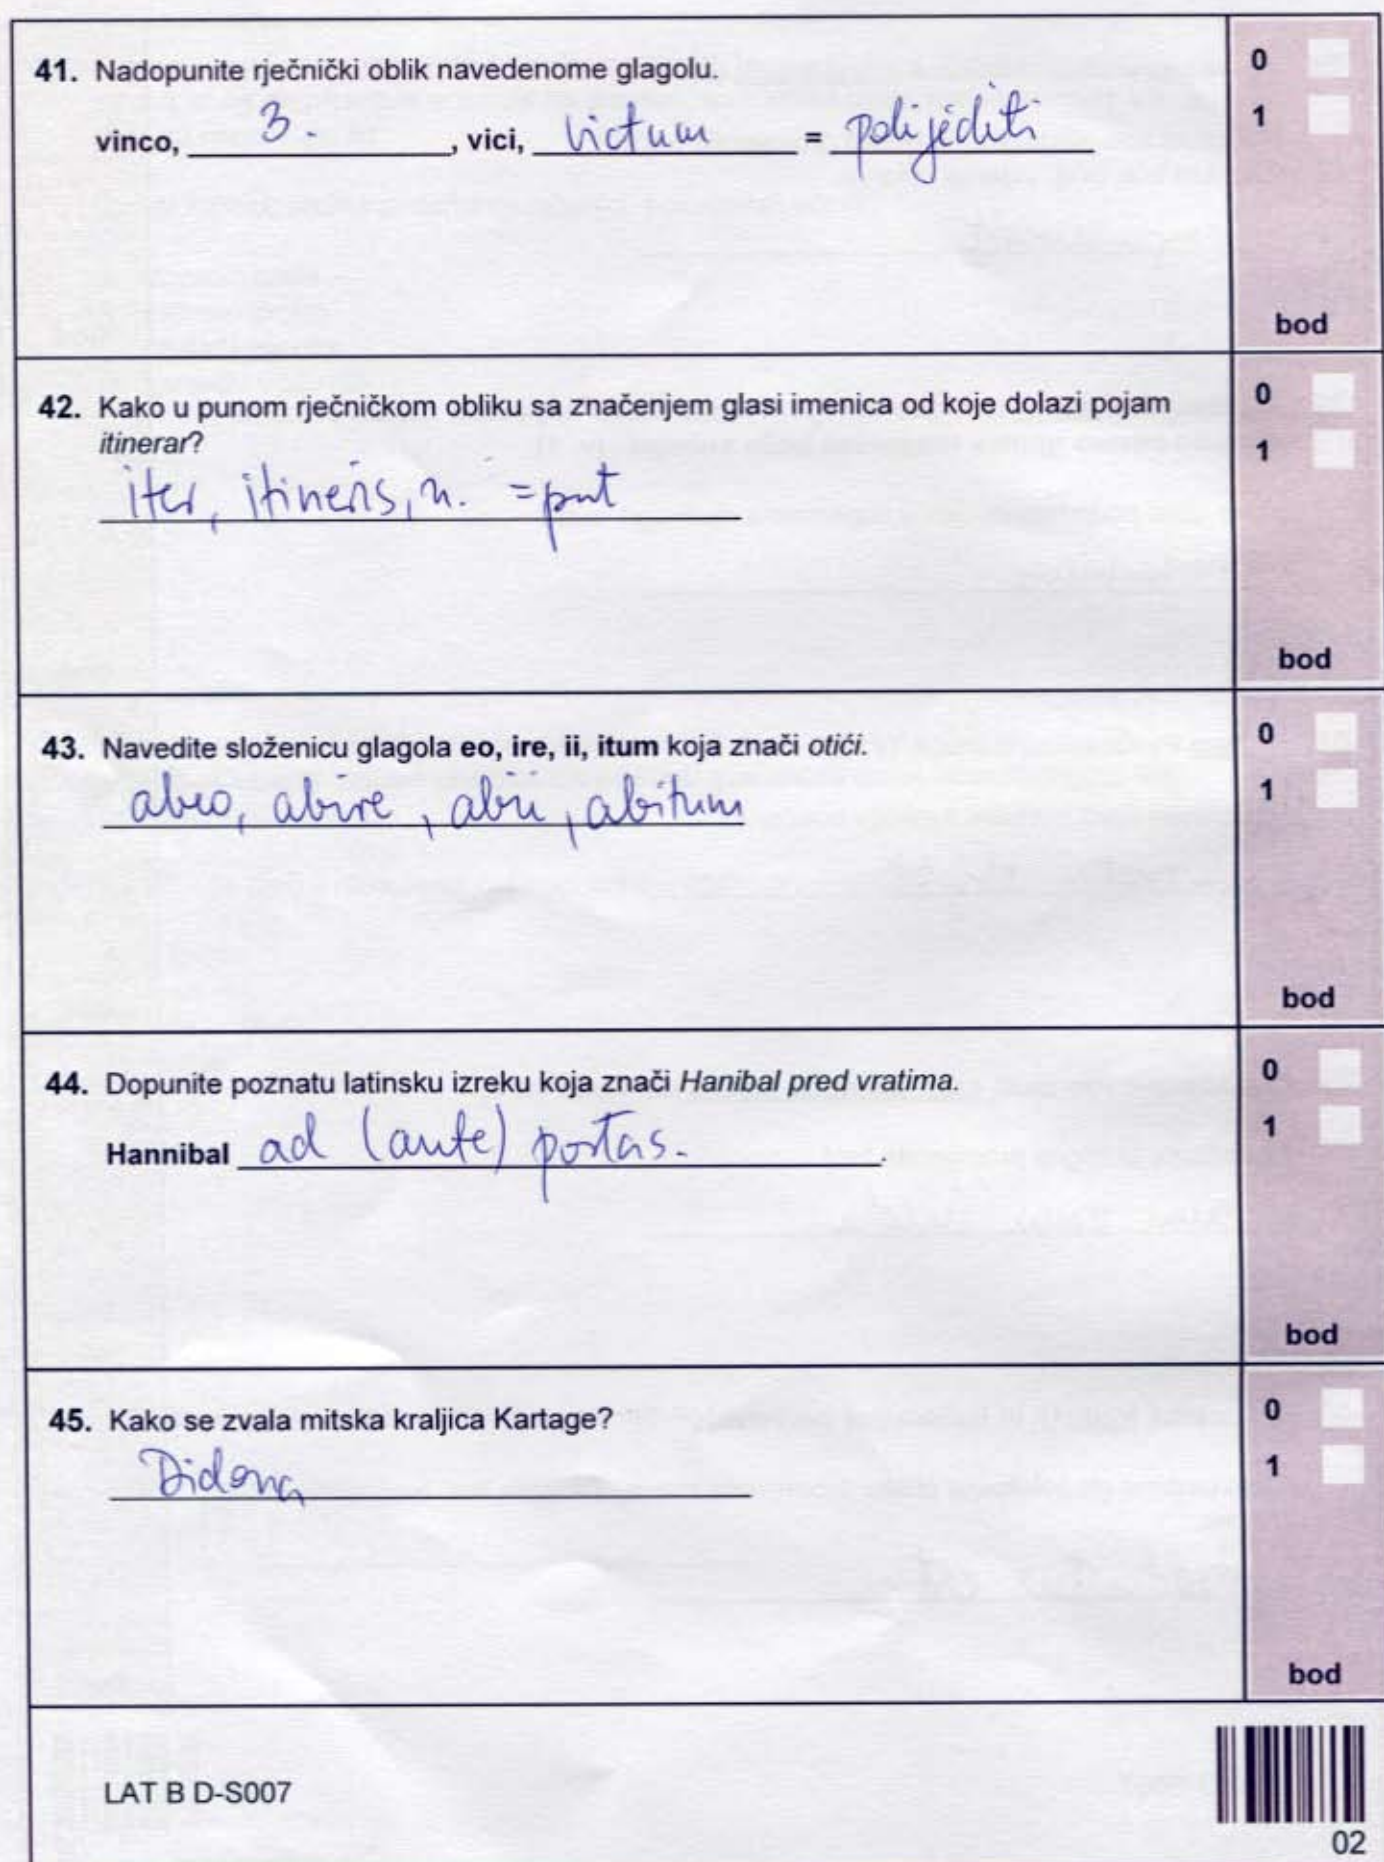 41. Nadopunite rječnički oblik navedenome glagolu.
0
1
vinco, 3. , vici, victum = pobijediti
bod
42. Kako u punom rječničkom obliku sa značenjem glasi imenica od koje dolazi pojam
itinerar?
0
1
iter, itineris, n. = put
bod
43. Navedite složenicu glagola eo, ire, ii, itum koja znači otići.
0
1
abeo, abire, abii, abitum
bod
44. Dopunite poznatu latinsku izreku koja znači Hanibal pred vratima.
0
1
Hannibal ad (ante) portas. .
bod
45. Kako se zvala mitska kraljica Kartage?
0
1
Didona
bod
LAT B D-S007
02